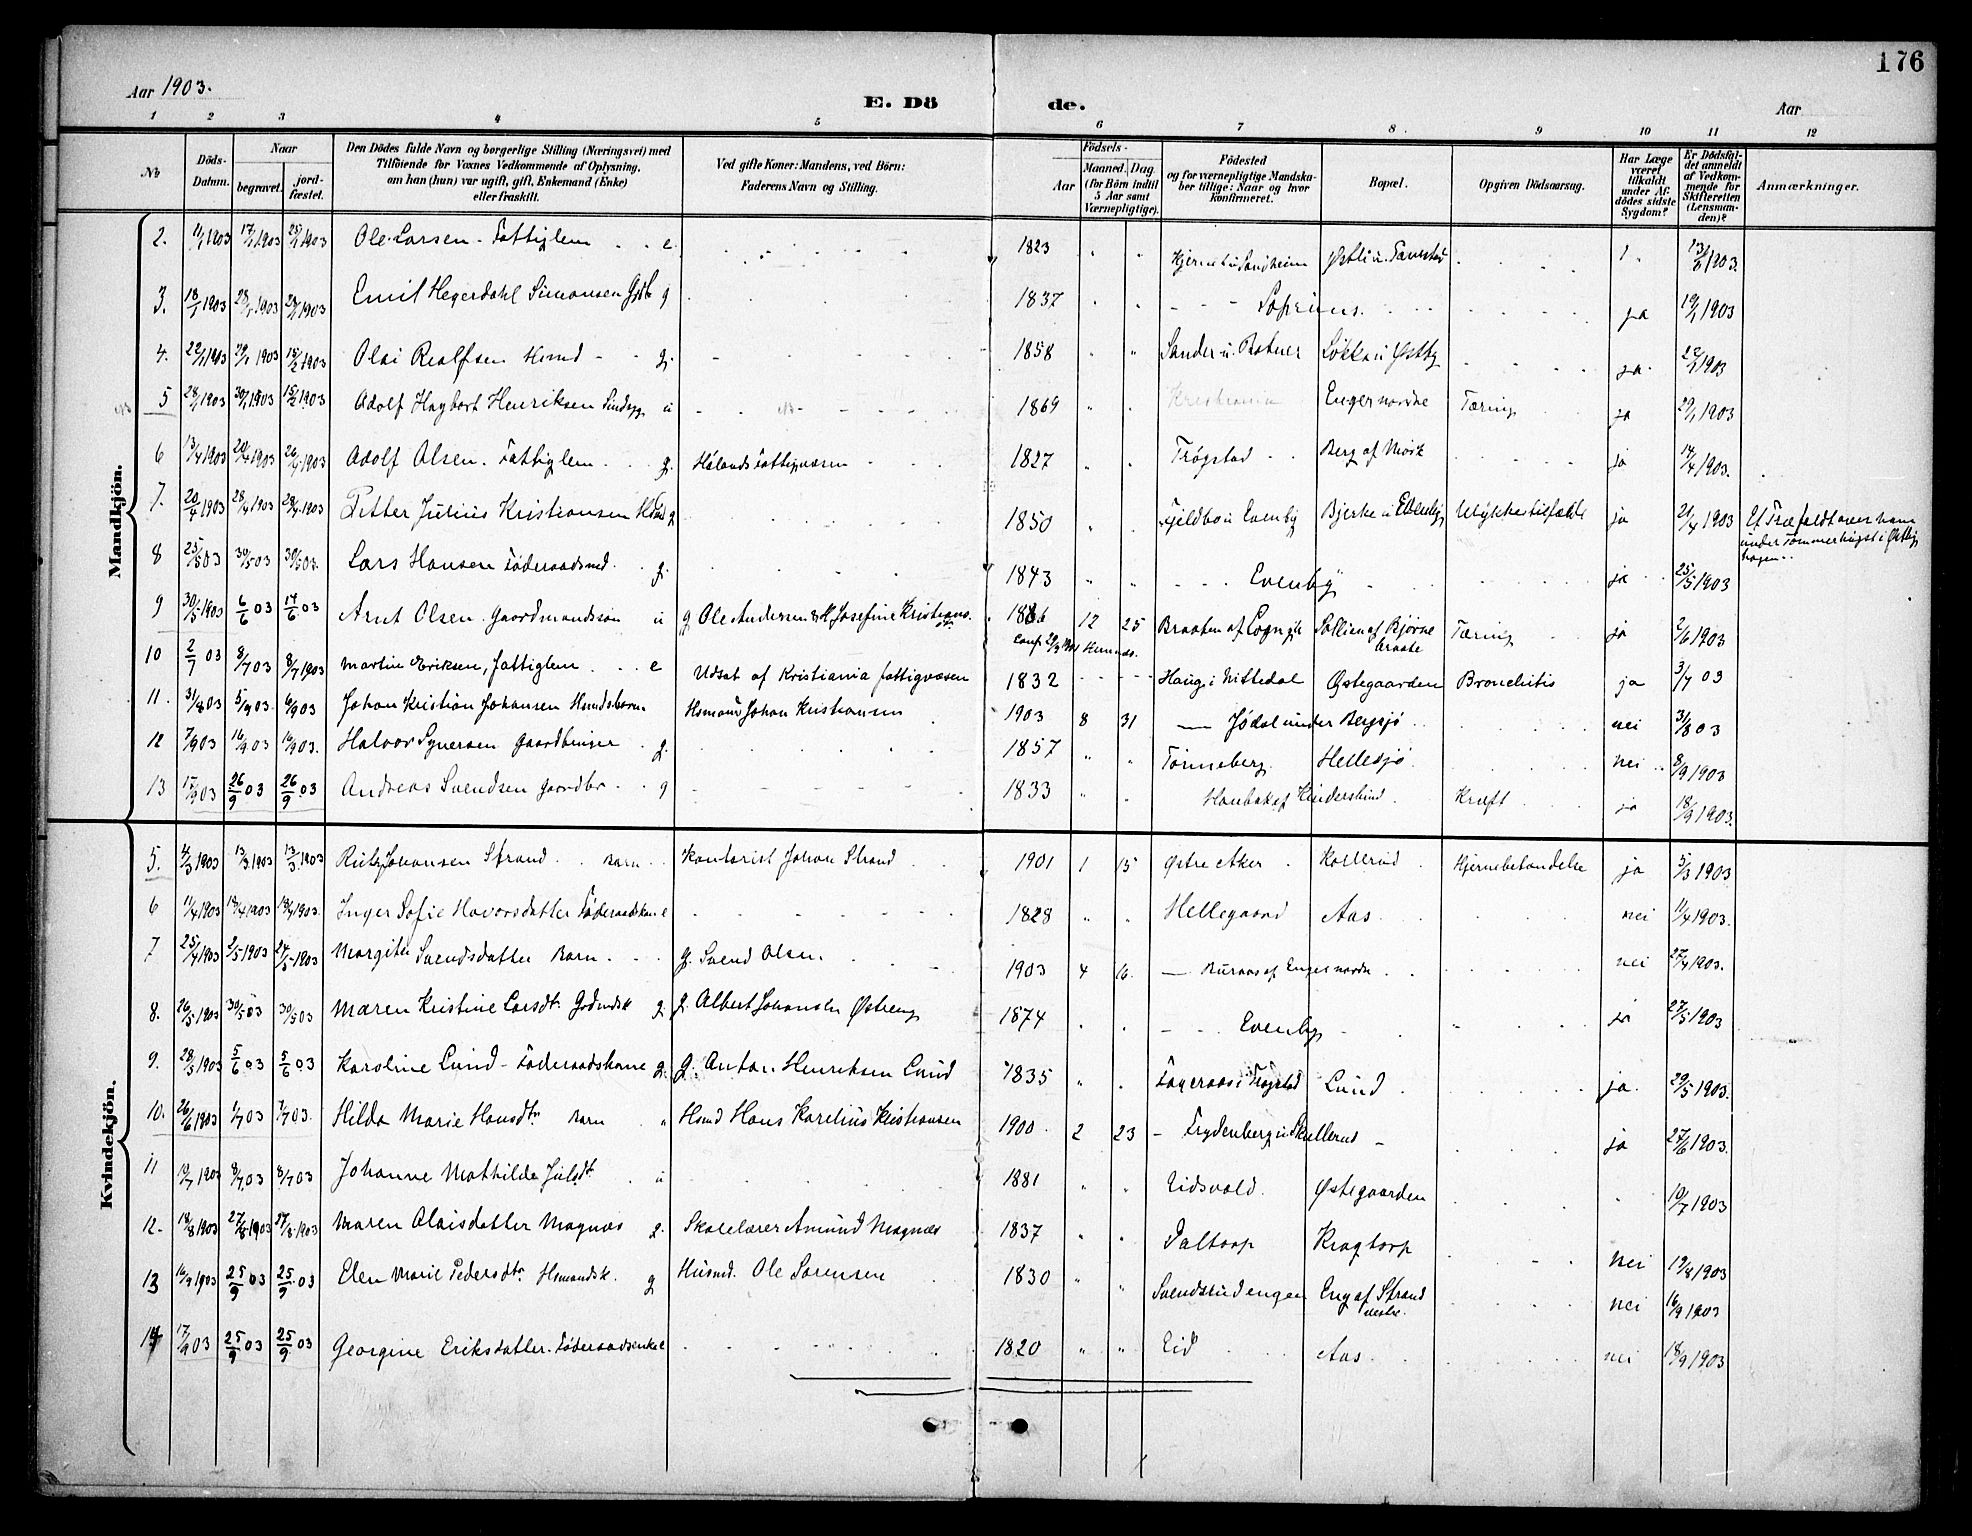 176
Aar 1903.
E. Dö de.
Aar
1 2 3 4 5 6 7 8 9 10 11 12
No
Döds-Datum.
Naar
begravet.
jord-fæstet.
Den Dödes fulde Navn og borgerlige Stilling (Næringsvei) med
Tilföiende for Voxnes Vedkommende af Oplysning,
om han (hun) var ugift, gift, Enkemand (Enke)
eller fraskilt.
Ved gifte Koner: Mandens, ved Börn:
Faderens Navn og Stilling.
Födsels-
Aar
Maaned. Dag
(for Börn indtil
5 Aar samt
Værnepligtige).
Födested
og for værnepligtige Mandska-
ber tillige: Naar og hvor
konfirmeret.
Bopæl.
Opgiven Dödsaarsag.
Har Læge
været
tilkaldt
under Af-
dödes sidste
Sygdom?
Er Dödsfal-
det anmeldt
af Vedkom-
mende for
Skifteretten
(Lensman-
den)?
Anmærkninger.
Mandkjön.
2. 11/1 1903 17/1 1903 25/1 1903 Ole Larsen. Fattiglem e. 1823 Østli u. Tævstad 13/1 1903.
3. 18/1 1903 28/1 1903 28/1 1903 Emil Hegerdahl Simonsen g 1837 ja 19/1 1903
4. 22/1 1903 29/1 1903 15/2 1903 Olai Realfsen Hsmd g. 1858 Sander u. Løkka u Østby ja. 22/1 1903
5 28/1 1903 30/1 1903 15/2 1903 Adolf Hagbart Henriksen u 1869 Kristiania Enger nordre Tæring ja 29/1 1903
6 13/4 1903 20/4 1903 26/4 1903 Adolf Olsen. Fattiglem g. Hølands Fattigvæsen 1827 Trøgstad Berg af Mosk ja 14/4 1903.
7. 20/4 1903 28/4 1903 28/4 1903 Petter Julius Kristiansen g 1850 Fjeldbo u Evenby Bjerke u Evenby Ulykkestilfælde ja 21/4 1903 Et Træ faldt over ham
under Tømmerhugst i Østby
hagen.
8 25/5 03 30/5 03 30/5 03. Lars Hansen Föderaadsmd. g. 1843 Evenby ja 25/5 1903
9 30/5 1903 6/6 03 14/6 03 Arnt Olsen. Gaardmandssøn u g Ole Andersen & Josefine Kristians. 1886 12 25 Braaten af Sollien af Bjørne Tæring ja 2/6 1903
braate
10 2/7 03 8/7 03 8/7 1903 Martin Eriksen, fattiglem e Udsat af Kristiania fattigvæsen 1832 Haug i Nittedal Østegaarden Bronchitis ja 3/7 03
11. 31/8 03 5/9 03. 6/9 03 Johan Kristian Johansen Hsmdsbarn Hsmand Johan Kristiansen 1903 8 31 — Jödal under Bergsjø nei 31/8 03
12 7/9 03 16/9 03 16/9 03. Halvor Syversen Gaardbruger g. 1857 Tørneberg Hellesjø nei 8/9 1903
13 17/9 03 26/9 03 26/9 03 Andreas Svendsen Gaardbr g 1833 Kræft ja 18/9 1903.
Kvindekjön.
5. 4/3 1903 13/3 1903 13/3 1903 Johansen Strand Barn Kontorist Johan Strand 1901 1 15 Østre Aker Kollerud Hjernebetændelse ja 5/3 1903
6 11/4 1903 18/4 1903 18/4 1903. Inger Sofie Havorsdatter Föderaadskone 1828 Hellegaard Aas nei 11/4 1903.
7 25/4 1903 2/5 1903 24/5 1903 Margite Svendsdatter Barn g. Svend Olsen. 1903 4 16 — Buraas af Enger nordre nei 27/4 1903.
8. 26/5 1903 30/5 03 30/5 03 Maren Kristine Larsdt. Grdmdsk g. g. Albert Johansen Østreng 1874 Evenby ja 27/5 1903
9. 28/5 1903 5/6 03 5/6 03 Karoline Lund – Föderaadskone g. g. Anton Henriksen Lund 1835 Trøgstad Lund ja. 29/5 1903.
10. 26/6 1903 1/7 03 1/7 03. Hilda Marie Hansdtr Barn Hsmd Hans Karelius Kristiansen 1900 2 23 Frydenberg u Skullerud ja 27/6 1903.
11 10/7 1903 8/7 03 8/7 03 Johanne Mathilde Julsdt. u 1881 Eidsvold. Østegaarden 10/7 1903
12. 18/8 1903 27/8 1903 27/8 1903 Maren Olaisdatter Magnæs g. Skolelærer Amund Magnæs 1837 Daltorp Kragtorp nei 19/8 1903
13 16/9 1903 25/9 03 25/9 03 Elen Marie Pedersdtr Hsmandsk. g Husmd. Ole Sørensen 1830 Svendsrudengen Eng af Strand nei 16/9 1903
vestre.
14 17/9 03 25/9 03 25/9 03 Georgine Eriksdatter. Föderaadsenke 1820 Eid Aas nei 18/9 1903